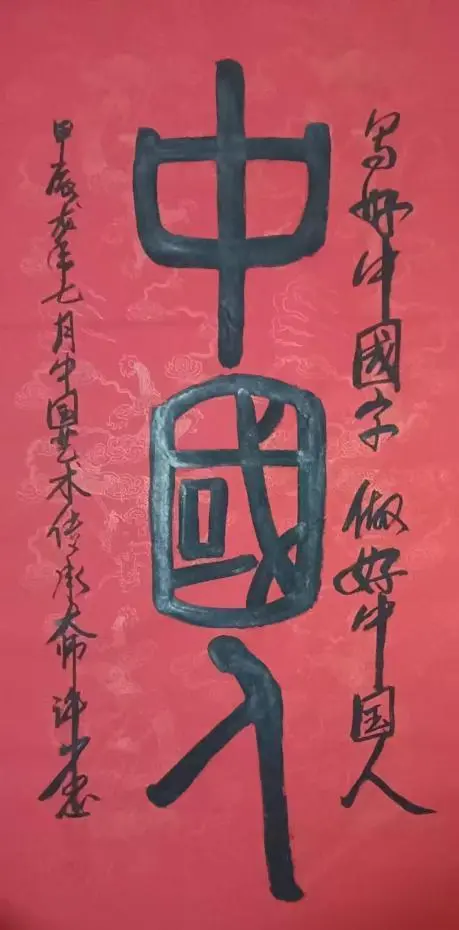 写好中國字 做好中国人
中國人
甲辰龙年七月中国艺术传承大师许